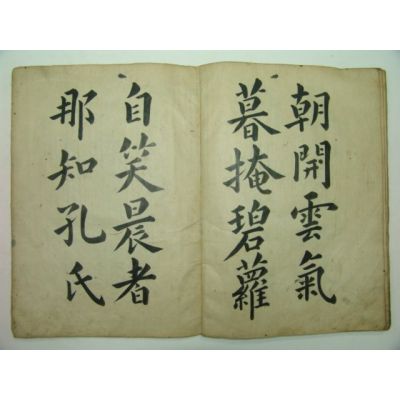 朝開雲氣
暮掩碧蘿
自笑晨者
那知孔氏